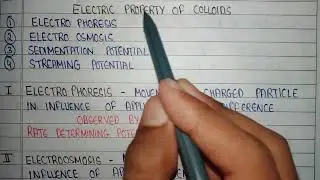 ELECTRIC PROPERTY OF COLLOIDS
① ELECTRO PHORESIS
② ELECTRO OSMOSIS
③ SEDIMENTATION POTENTIAL
④ STREAMING POTENTIAL
I ELECTROPHORESIS - CHARGED PARTICLE
IN INFLUENCE OF
OBSERVED BY
RATE DETERMINING
II ELECTROOSMOSIS -
INFLUENCE OF